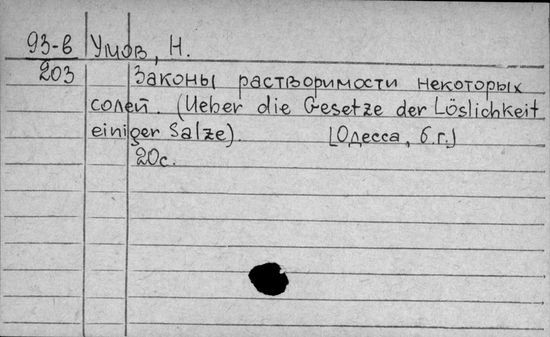 93-в Умов, Н.
203 Законы растворимости некоторых
солей. (Ueber die Gesetze der Löslichkeit
einiger Salze). [Одесса, б.г.]
20с.